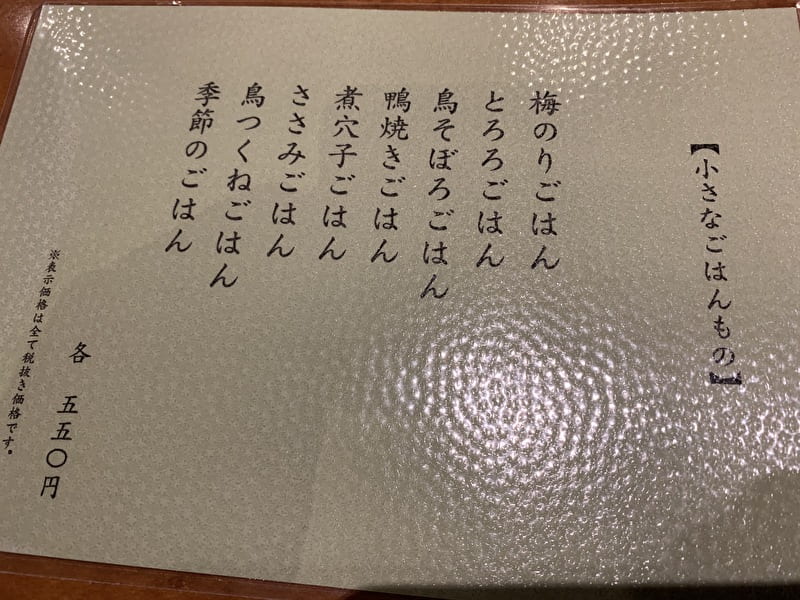 【小さなごはんもの】
梅のりごはん
とろろごはん
鳥そぼろごはん
鴨焼きごはん
煮穴子ごはん
ささみごはん
鳥つくねごはん
季節のごはん
各 五五〇円
※表示価格は全て税抜き価格です。